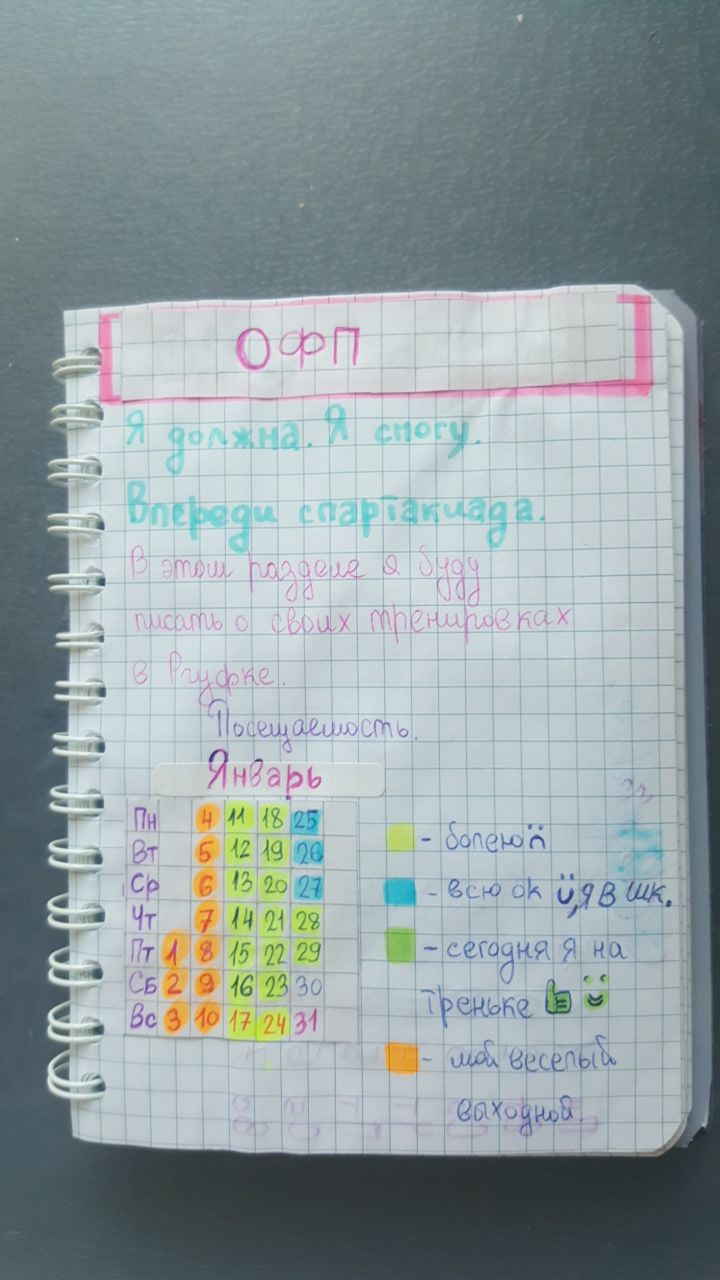 ОФП
Я должна. Я смогу.
Впереди спартакиада.
В этом разделе я буду
писать о своих тренировках
в Ргуфке.
Посещаемость.
Январь
Пн 4 11 18 25
Вт 5 12 19 26
Ср 6 13 20 27
Чт 7 14 21 28
Пт 1 8 15 22 29
Сб 2 9 16 23 30
Вс 3 10 17 24 31
- болею
- всю ок, я в шк.
- сегодня я на
треньке
- мой веселый
выходной.